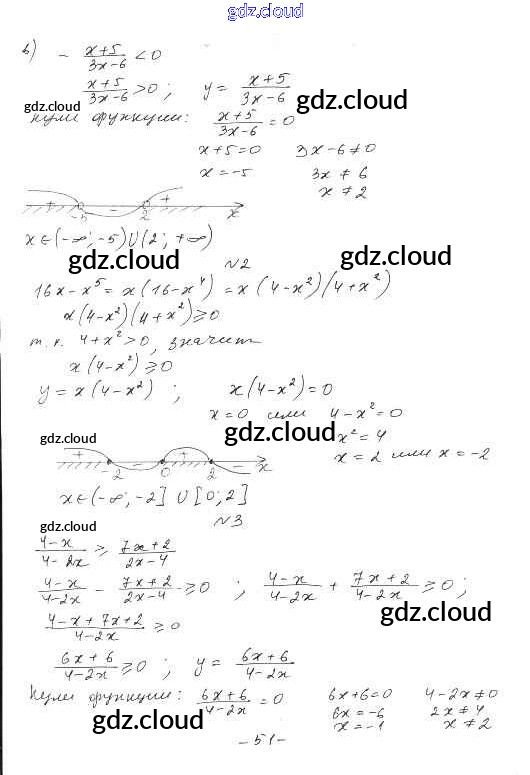 gdz.cloud
gdz.cloud
b) - x+5/3x-6 < 0
x+5/3x-6 > 0 ; y = x+5/3x-6
gdz.cloud
gdz.cloud
нули функции: x+5/3x-6 = 0
x+5=0 3x-6≠0
x=-5 3x≠6
x≠2
+ -5 - 2 + x
x∈(-∞;-5)∪(2;+∞)
gdz.cloud
gdz.cloud
N2
16x-x⁵=x(16-x⁴)=x(4-x²)(4+x²)
x(4-x²)(4+x²)≥0
т.к. 4+x²>0, значит
x(4-x²)≥0
y=x(4-x²) ; x(4-x²)=0
x=0 или 4-x²=0
gdz.cloud
gdz.cloud
x²=4
x=2 или x=-2
+ -2 - 0 + 2 - x
x∈(-∞,-2]∪[0;2]
N3
gdz.cloud
4-x/4-2x ≥ 7x+2/2x-4
4-x/4-2x - 7x+2/2x-4 ≥0 ; 4-x/4-2x + 7x+2/4-2x ≥0 ;
gdz.cloud
gdz.cloud
4-x+7x+2/4-2x ≥0
6x+6/4-2x ≥0 ; y = 6x+6/4-2x
Нули функции: 6x+6/4-2x = 0 6x+6=0 4-2x≠0
gdz.cloud
gdz.cloud
6x=-6 2x≠4
x=-1 x≠2
-51-
gdz.cloud